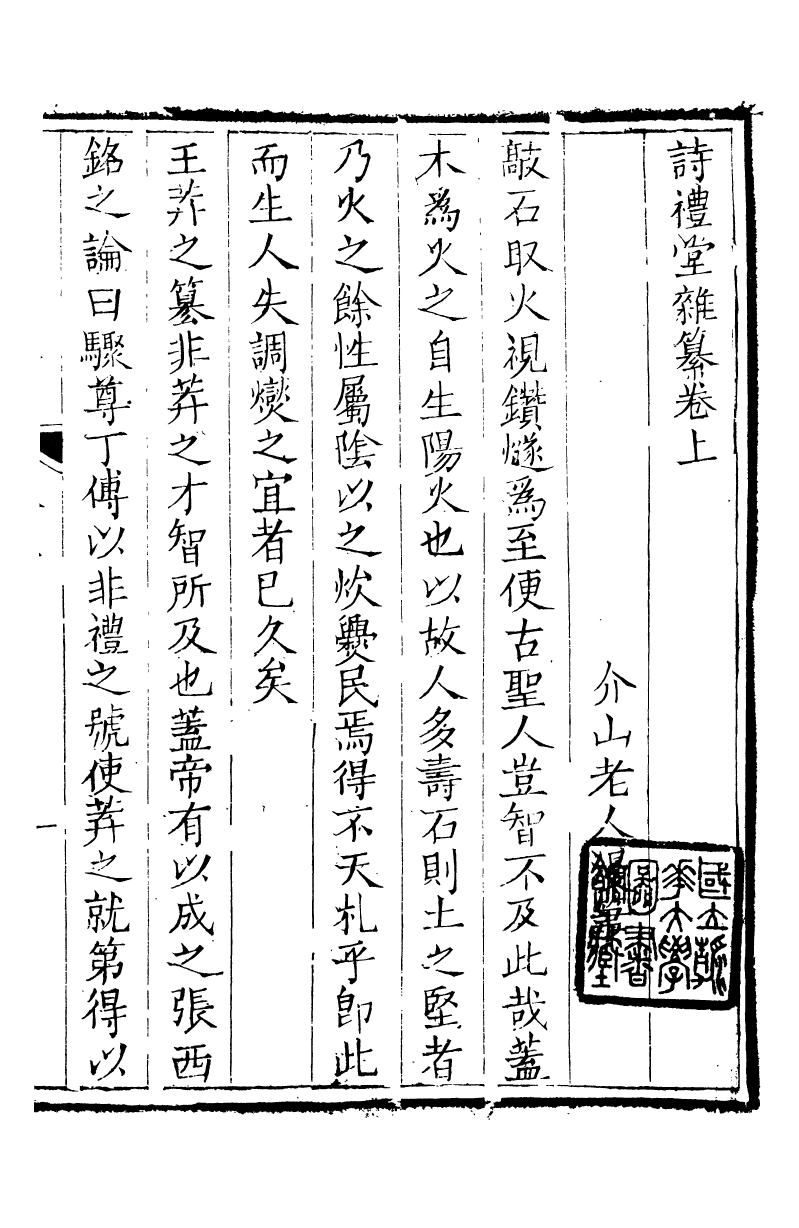 詩禮堂雜纂卷上
介山老人
敲石取火視鑽燧爲至便古聖人豈智不及此哉蓋
木爲火之自生陽火也以故人多壽石則土之堅者
乃火之餘性屬陰以之炊爨民焉得不夭札乎卽此
而生人失調燮之宜者已久矣
王莽之篡非莽之才智所及也蓋帝有以成之張西
銘之論曰驟尊丁傅以非禮之號使莽之就第得以
一
國立清華大學圖書館藏